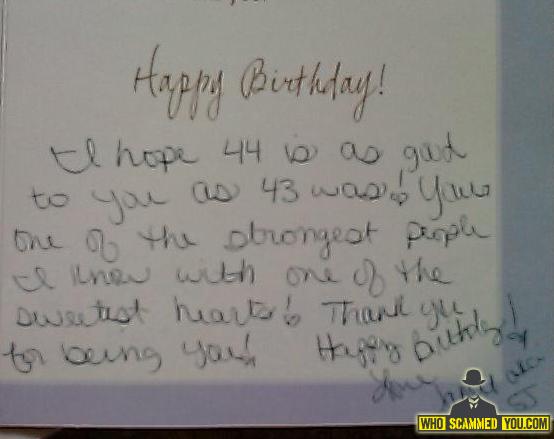 Happy Birthday!
I hope 44 is as good
to you as 43 was! Your
one of the strongest people
I know with one of the
sweetest hearts! Thank you
for being you! Happy Birthday!
WHO SCAMMED YOU.COM